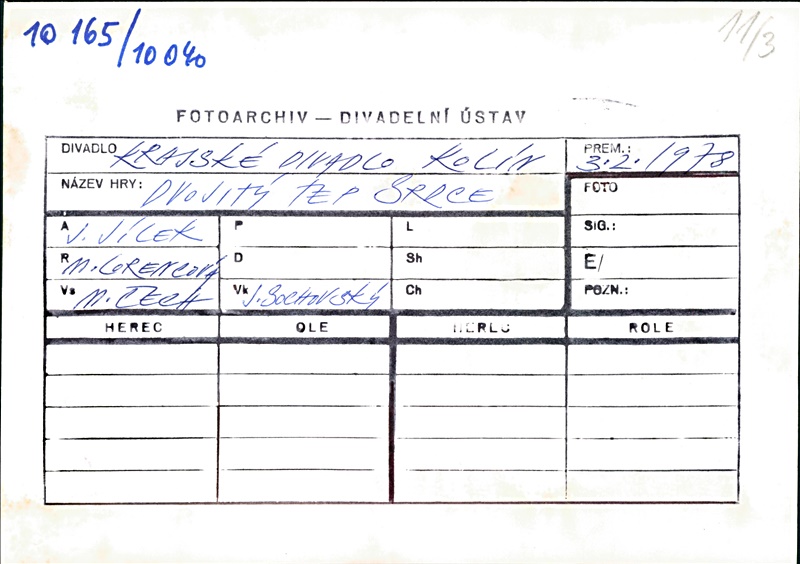 10 165/10 040
11/3
FOTOARCHIV — DIVADELNÍ ÚSTAV
DIVADLO KRAJSKÉ DIVADLO KOLÍN PREM.: 3.2.1978
NÁZEV HRY: DVOJITÝ TEP SRDCE FOTO
A J. JÍLEK P L SIG.:
R M. LORENCOVÁ D Sh Ě/
Vs M. ČECH Vk J. SOCHOVSKÝ Ch POZN.:
HEREC OLE HEREC ROLE